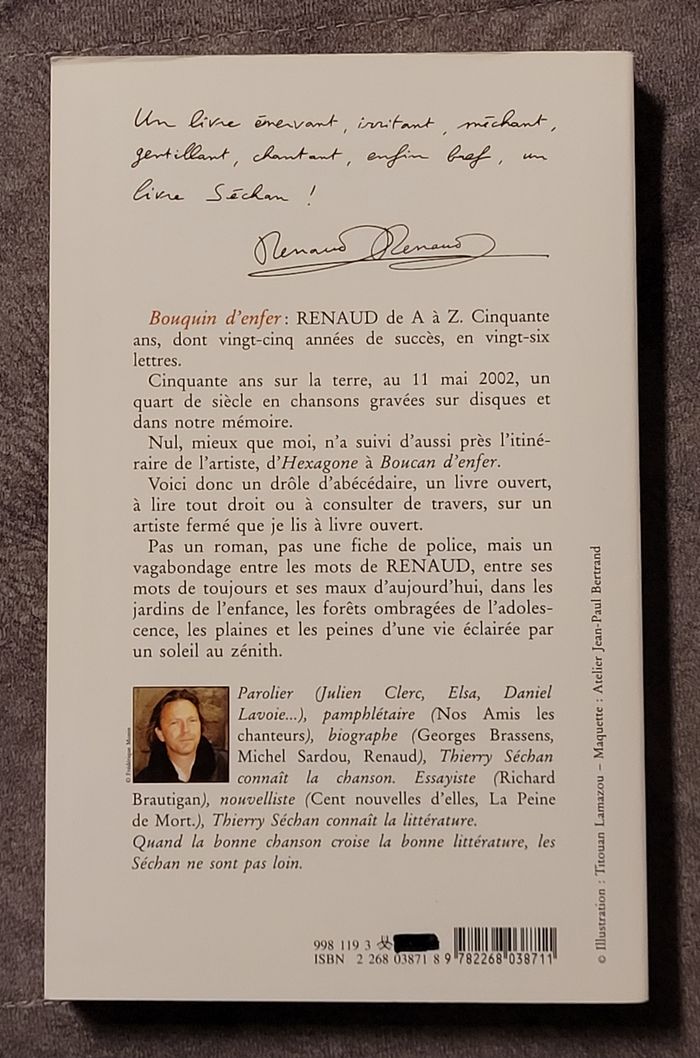 Un livre énervant, irritant, méchant,
gentillant, chantant, enfin bref, un
livre Séchan !
Renaud Renaud
Bouquin d'enfer : RENAUD de A à Z. Cinquante
ans, dont vingt-cinq années de succès, en vingt-six
lettres.
Cinquante ans sur la terre, au 11 mai 2002, un
quart de siècle en chansons gravées sur disques et
dans notre mémoire.
Nul, mieux que moi, n'a suivi d'aussi près l'itiné-
raire de l'artiste, d'Hexagone à Boucan d'enfer.
Voici donc un drôle d'abécédaire, un livre ouvert,
à lire tout droit ou à consulter de travers, sur un
artiste fermé que je lis à livre ouvert.
Pas un roman, pas une fiche de police, mais un
vagabondage entre les mots de RENAUD, entre ses
mots de toujours et ses maux d'aujourd'hui, dans les
jardins de l'enfance, les forêts ombragées de l'adoles-
cence, les plaines et les peines d'une vie éclairée par
un soleil au zénith.
Parolier (Julien Clerc, Elsa, Daniel
Lavoie...), pamphlétaire (Nos Amis les
chanteurs), biographe (Georges Brassens,
Michel Sardou, Renaud), Thierry Séchan
connaît la chanson. Essayiste (Richard
Brautigan), nouvelliste (Cent nouvelles d'elles, La Peine
de Mort.), Thierry Séchan connaît la littérature.
Quand la bonne chanson croise la bonne littérature, les
Séchan ne sont pas loin.
© Frédérique
998 119 3
ISBN 2 268 03871 8
9 782268 038711
© Illustration : Titouan Lamazou – Maquette : Atelier Jean-Paul Bertrand